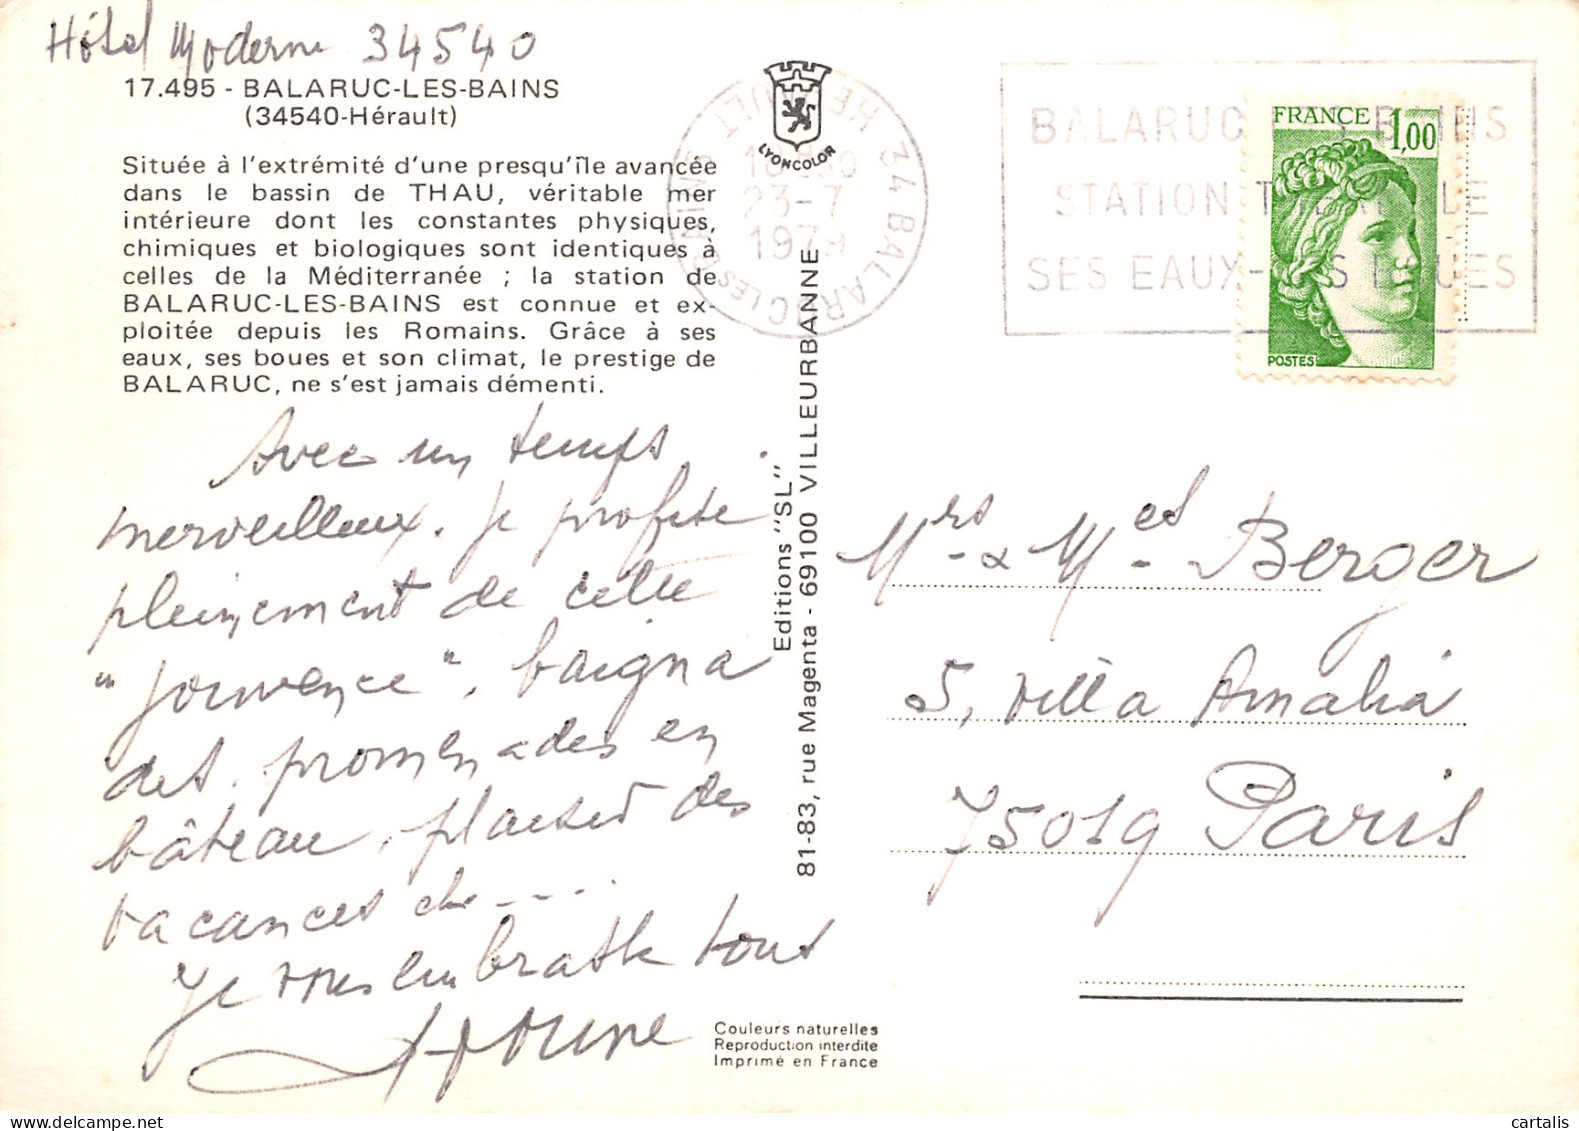 Hôtel Moderne 34540
17.495 - BALARUC-LES-BAINS
(34540-Hérault)
Située à l'extrémité d'une presqu'île avancée
dans le bassin de THAU, véritable mer
intérieure dont les constantes physiques,
chimiques et biologiques sont identiques à
celles de la Méditerranée ; la station de
BALARUC-LES-BAINS est connue et ex-
ploitée depuis les Romains. Grâce à ses
eaux, ses boues et son climat, le prestige de
BALARUC, ne s'est jamais démenti.
Avec un temps
merveilleux. je profite
pleinement de cette
"jouvence", baigna
des. promenades en
bâteau, plaisir des
vacances
Je vous embrasse tous
LYONCOLOR
34 BALARUC LES BAINS HERAULT
23-7
1979
Editions "SL"
81-83, rue Magenta - 69100 VILLEURBANNE
BALARUC BAINS
STATION
SES EAUX - BOUES
FRANCE 1,00
POSTES
Mrs & Mes Berger
5, villa Amalia
75019 Paris
Couleurs naturelles
Reproduction interdite
Imprimé en France
cartalis